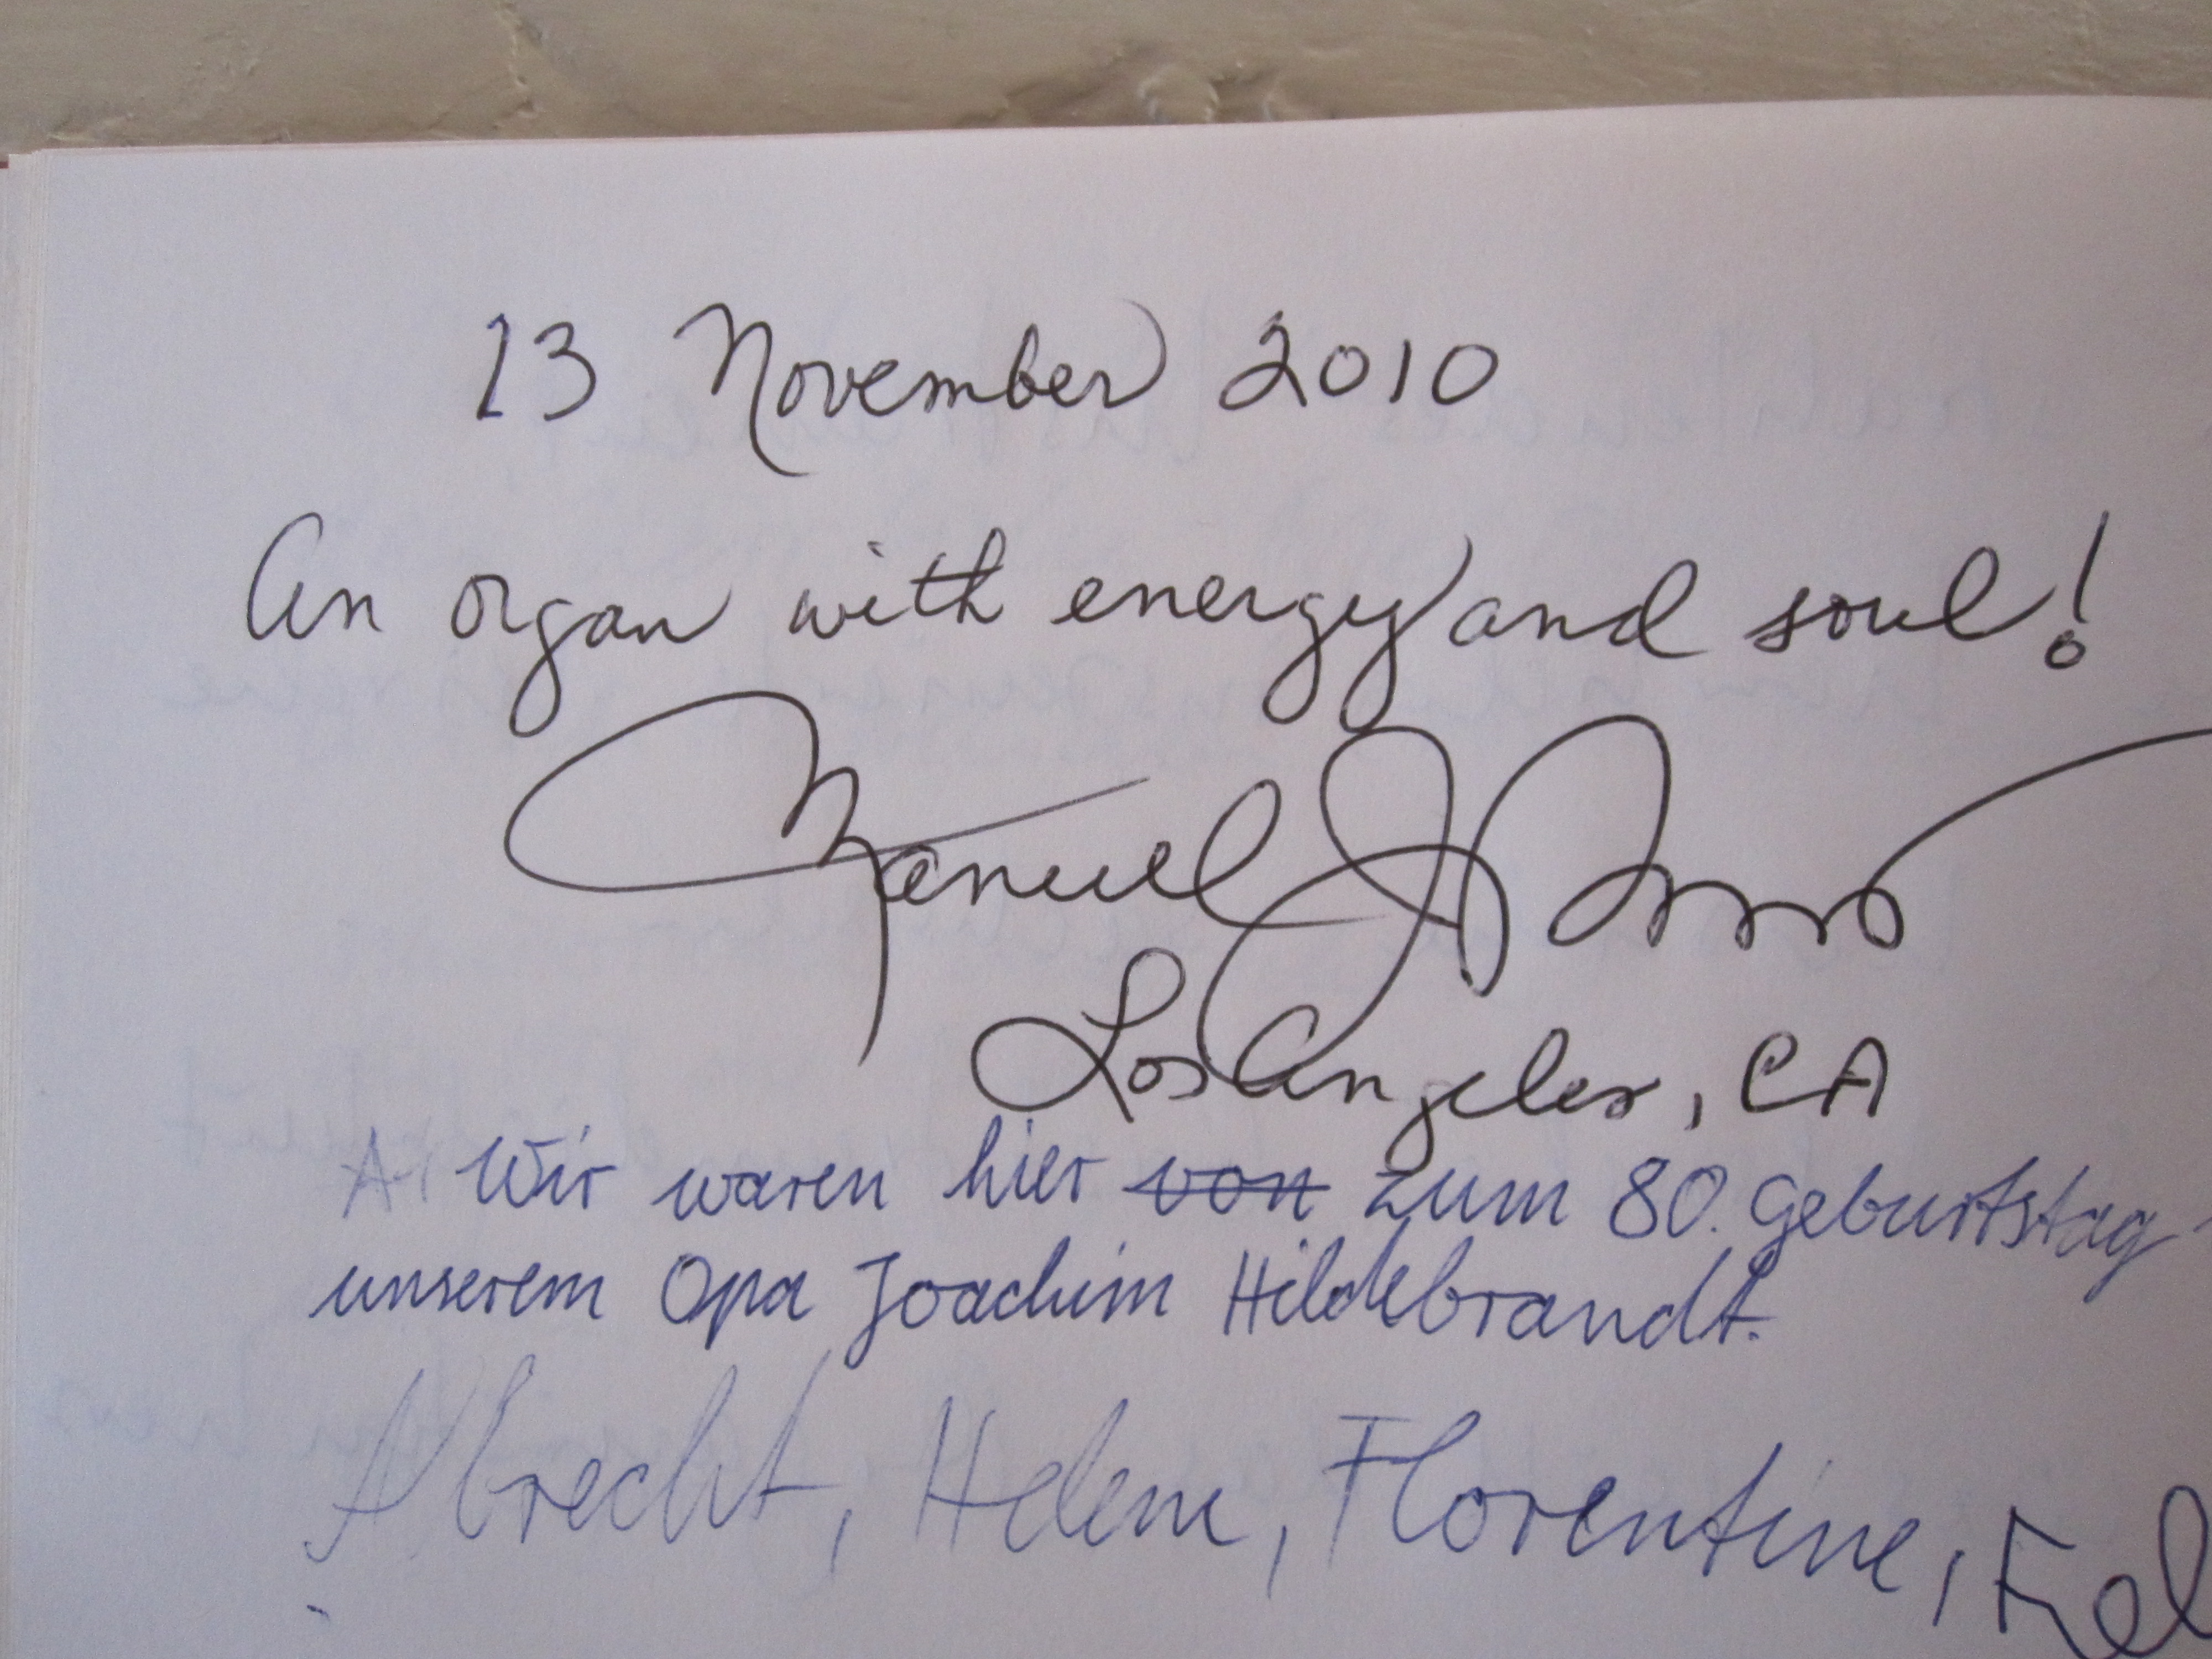 13 November 2010
An organ with energy and soul!
Manuel J
Los Angeles, CA
A. Wir waren hier von zum 80. Geburtstag
unserem Opa Joachim Hildebrandt.
Albrecht, Helene, Florentine, Fel